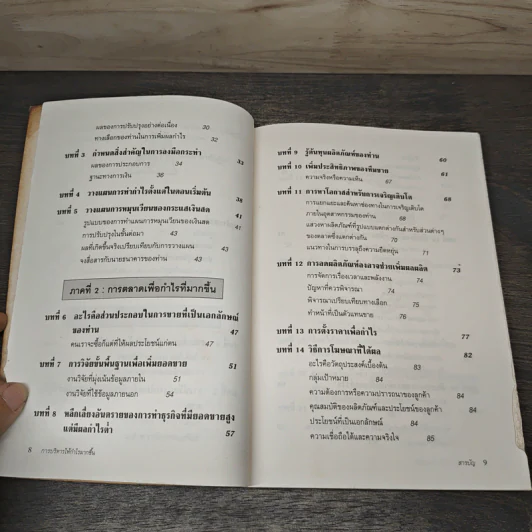 ผลของการปรับปรุงอย่างต่อเนื่อง 30
ทางเลือกของท่านในการเพิ่มผลกำไร 32
บทที่ 3 กำหนดสิ่งสำคัญในการลงมือกระทำ 33
ผลของการประกอบการ 34
ฐานะทางการเงิน 36
บทที่ 4 วางแผนการทำกำไรตั้งแต่ในตอนเริ่มต้น 38
บทที่ 5 วางแผนการหมุนเวียนของกระแสเงินสด 41
รูปแบบของการทำแผนการหมุนเวียนของเงินสด 41
การปรับปรุงในขั้นต่อมา 43
ผลที่เกิดขึ้นจริงเปรียบเทียบกับการวางแผน 43
จงสื่อสารกับนายธนาคารของท่าน 43
ภาคที่ 2 : การตลาดเพื่อกำไรที่มากขึ้น
บทที่ 6 อะไรคือส่วนประกอบในการขายที่เป็นเอกลักษณ์
ของท่าน 47
คนเราจะซื้อก็แต่ที่ให้ผลประโยชน์แก่ตน 47
บทที่ 7 การวิจัยขั้นพื้นฐานเพื่อเพิ่มยอดขาย 51
งานวิจัยที่มุ่งเน้นข้อมูลภายใน 51
งานวิจัยที่ใช้ข้อมูลภายนอก 54
บทที่ 8 หลีกเลี่ยงอันตรายของการทำธุรกิจที่มียอดขายสูง
แต่มีผลกำไรต่ำ 57
8 การบริหารให้กำไรมากขึ้น
บทที่ 9 รู้ต้นทุนผลิตภัณฑ์ของท่าน 60
บทที่ 10 เพิ่มประสิทธิภาพของทีมขาย 66
ความจริงหรือความเห็น 67
บทที่ 11 การหาโอกาสสำหรับการเจริญเติบโต 68
การแยกแยะและค้นหาช่องทางในการเจริญเติบโต
ภายในอุตสาหกรรมของท่าน 68
แสวงหาผลิตภัณฑ์ที่รูปแบบแตกต่างกันสำหรับส่วนต่างๆ
ของตลาดซึ่งแตกต่างกัน 70
แนวทางในการบรรลุถึงความยืดหยุ่น 71
บทที่ 12 การลดผลิตภัณฑ์ลงอาจช่วยเพิ่มผลผลิต 73
การจัดการเรื่องเวลาและพลังงาน 74
ปัญหาที่ควรพิจารณา 74
พิจารณาเปรียบเทียบทางเลือก 75
ทำหน้าที่เป็นตัวแทนขาย 76
บทที่ 13 การตั้งราคาเพื่อกำไร 77
บทที่ 14 วิธีการโฆษณาที่ได้ผล 82
อะไรคือวัตถุประสงค์เบื้องต้น 83
กลุ่มเป้าหมาย 84
ความต้องการหรือความปรารถนาของลูกค้า 84
คุณสมบัติของผลิตภัณฑ์และประโยชน์ของลูกค้า 84
ประโยชน์ที่เป็นเอกลักษณ์ 84
ความเชื่อถือได้และความจริงใจ 85
สารบัญ 9